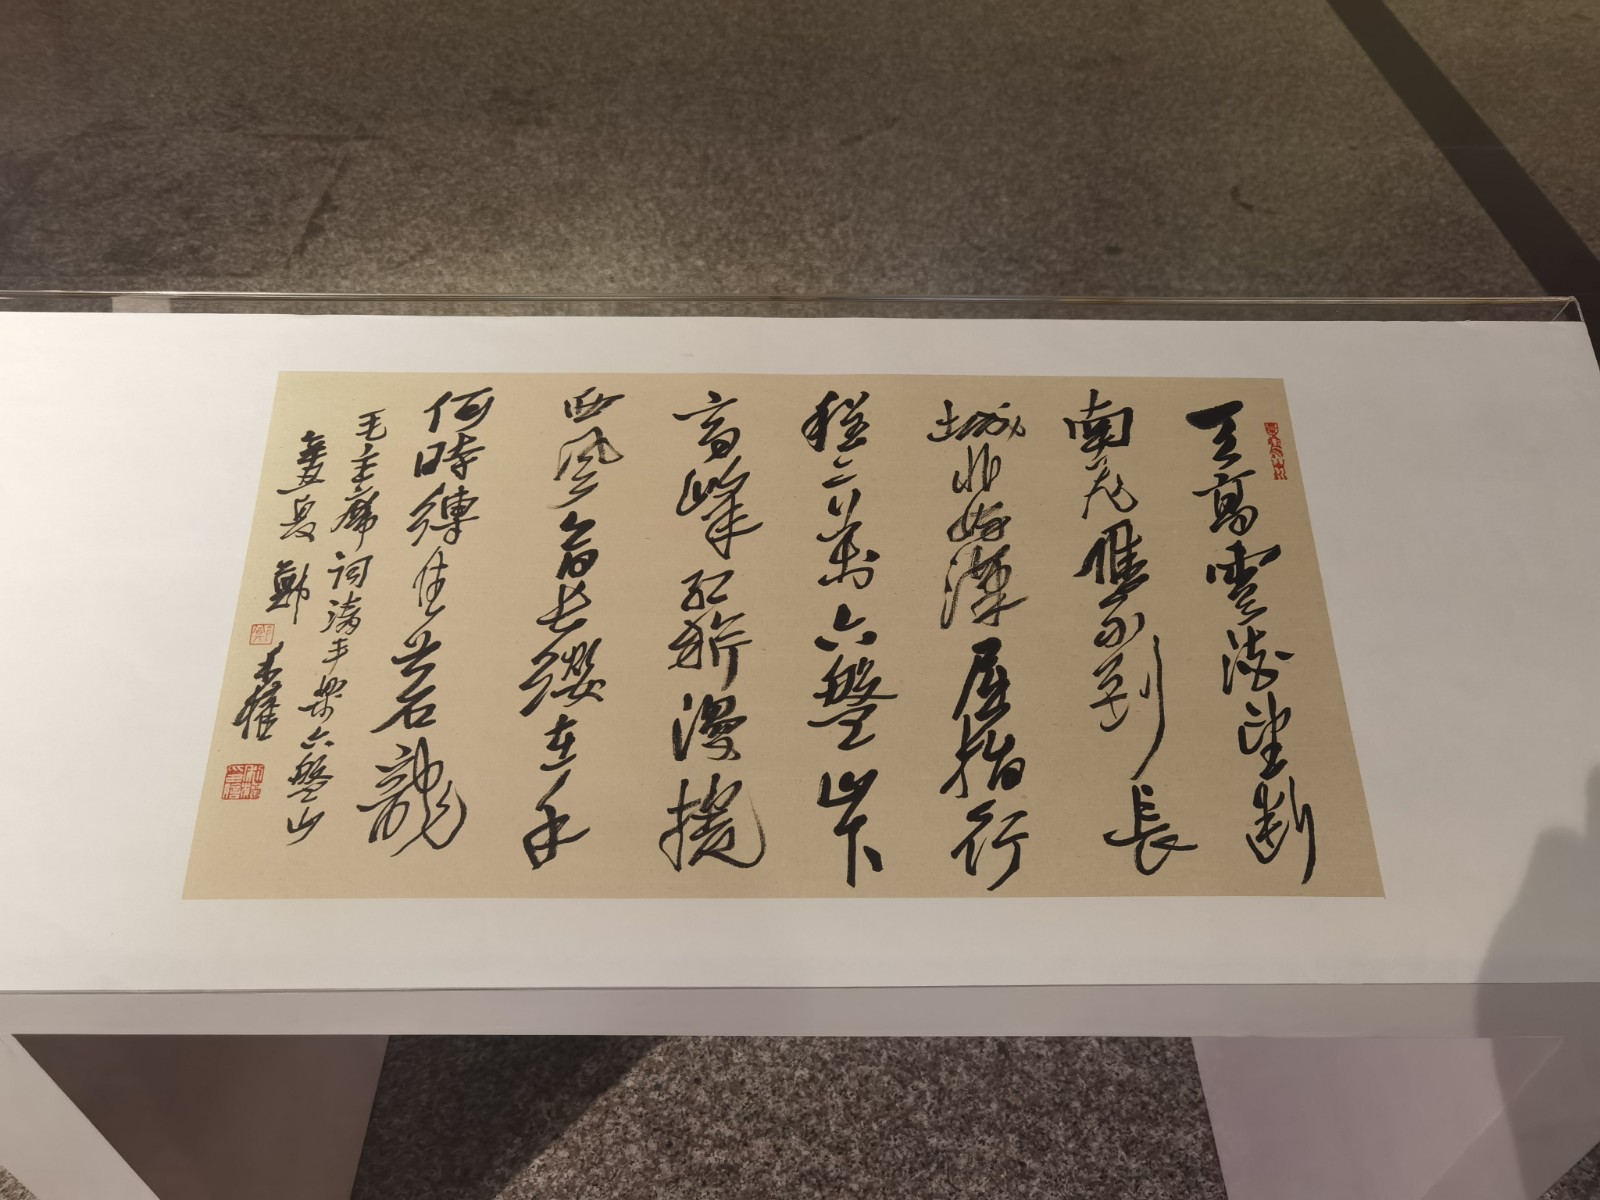 天高雲淡望断
南飛雁不到長
城非好漢屈指行
程二萬六盤山下
高峰紅旂漫捲
西風今日長纓在手
何時縛住蒼龍
毛主席詞清平樂六盤山
夏鄭